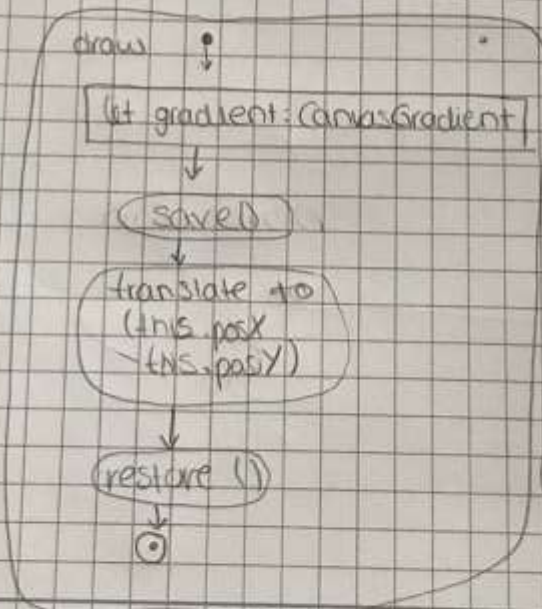 draw
let gradient: CanvasGradient
save()
translate to
(this.posX
-this.posY)
restore ()